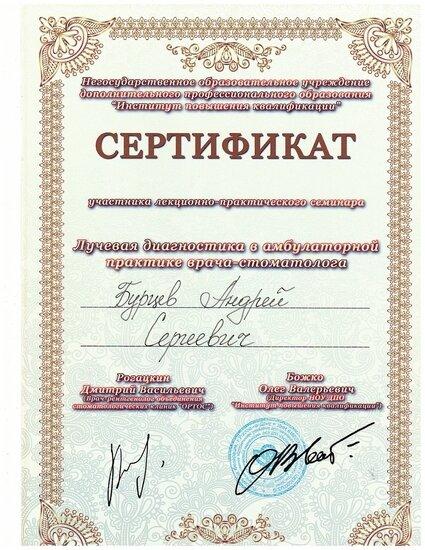 Негосударственное образовательное учреждение
дополнительного профессионального образования
"Институт повышения квалификации"
СЕРТИФИКАТ
участника лекционно-практического семинара
Лучевая диагностика в амбулаторной
практике врача-стоматолога
Бурцев Андрей
Сергеевич
Рогацкин
Дмитрий Васильевич
(Врач-рентгенолог объединения
стоматологических клиник "ОРТОС")
Божко
Олег Валерьевич
(Директор НОУ ДПО
"Институт повышения квалификации")